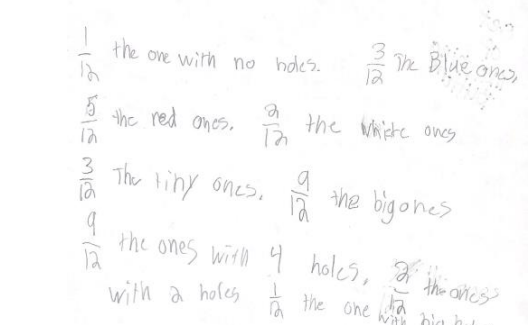 1/12 the one with no holes. 3/12 The Blue ones,
5/12 the red ones. 2/12 the white ones
3/12 The tiny ones. 9/12 the big ones
9/12 the ones with 4 holes, 2/12 the ones
with 2 holes 1/12 the one with big